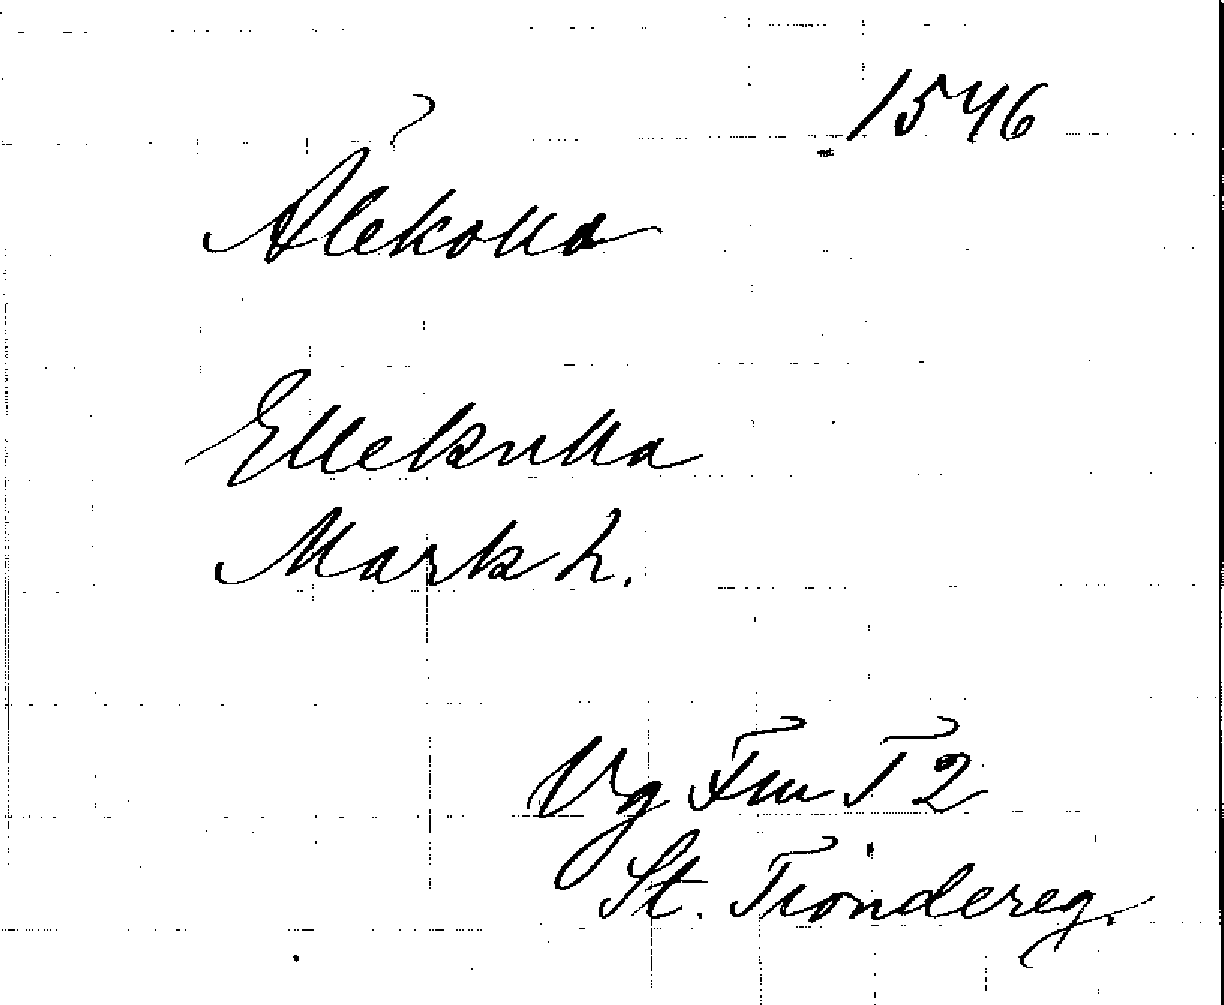 1546
Ålekolla
Ellekulla
Markh.
Vg Fm T 2
St. Tiondereg.